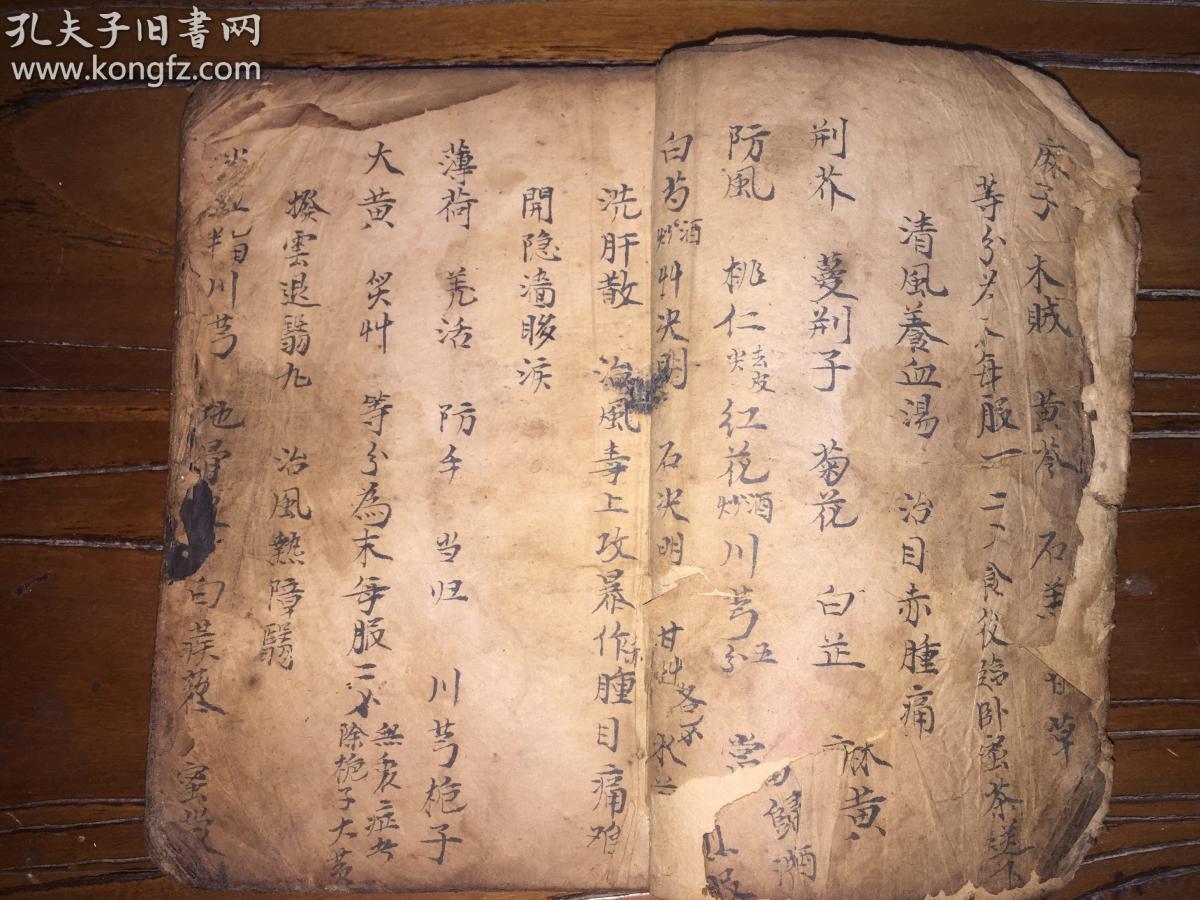 孔夫子旧书网
www.kongfz.com
麻子 木賊 黄芩 石羔 甘草
等分 每服一二 食後臨卧蜜茶送下
清風養血湯 治目赤腫痛
荆芥 蔓荆子 菊花 白芷 麻黄
防風 桃仁去皮尖 红花酒炒 川芎五分 當歸酒
白芍酒炒 艸决明 石决明 甘艸各 水
洗肝散 治風毒上攻暴作赤腫目痛难
開隐濇眵淚
薄荷 羌活 防手 当归 川芎 栀子
大黄 炙艸 等分為末每服二 無裏症者除栀子大黄
撥雲退翳九 治風熱障翳
川芎 地骨 白蒺藜 蜜蒙